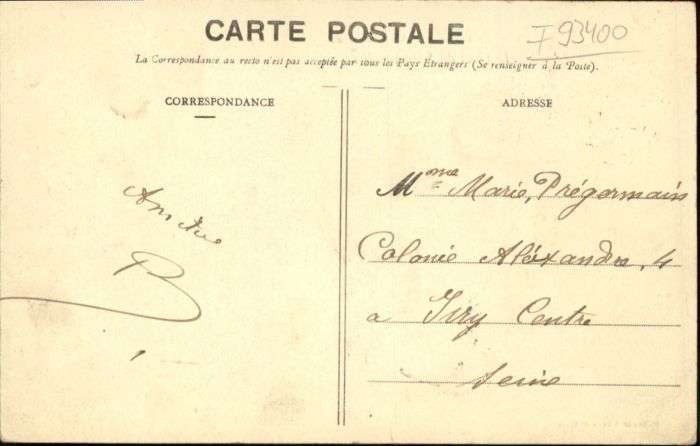 CARTE POSTALE
I 93400
La Correspondance au recto n'est pas acceptée par tous les Pays Étrangers (Se renseigner à la Poste).
CORRESPONDANCE
ADRESSE
Mme Marie Prégermain
Colonie Aléxandre, 4
a Ivry Centre
Seine